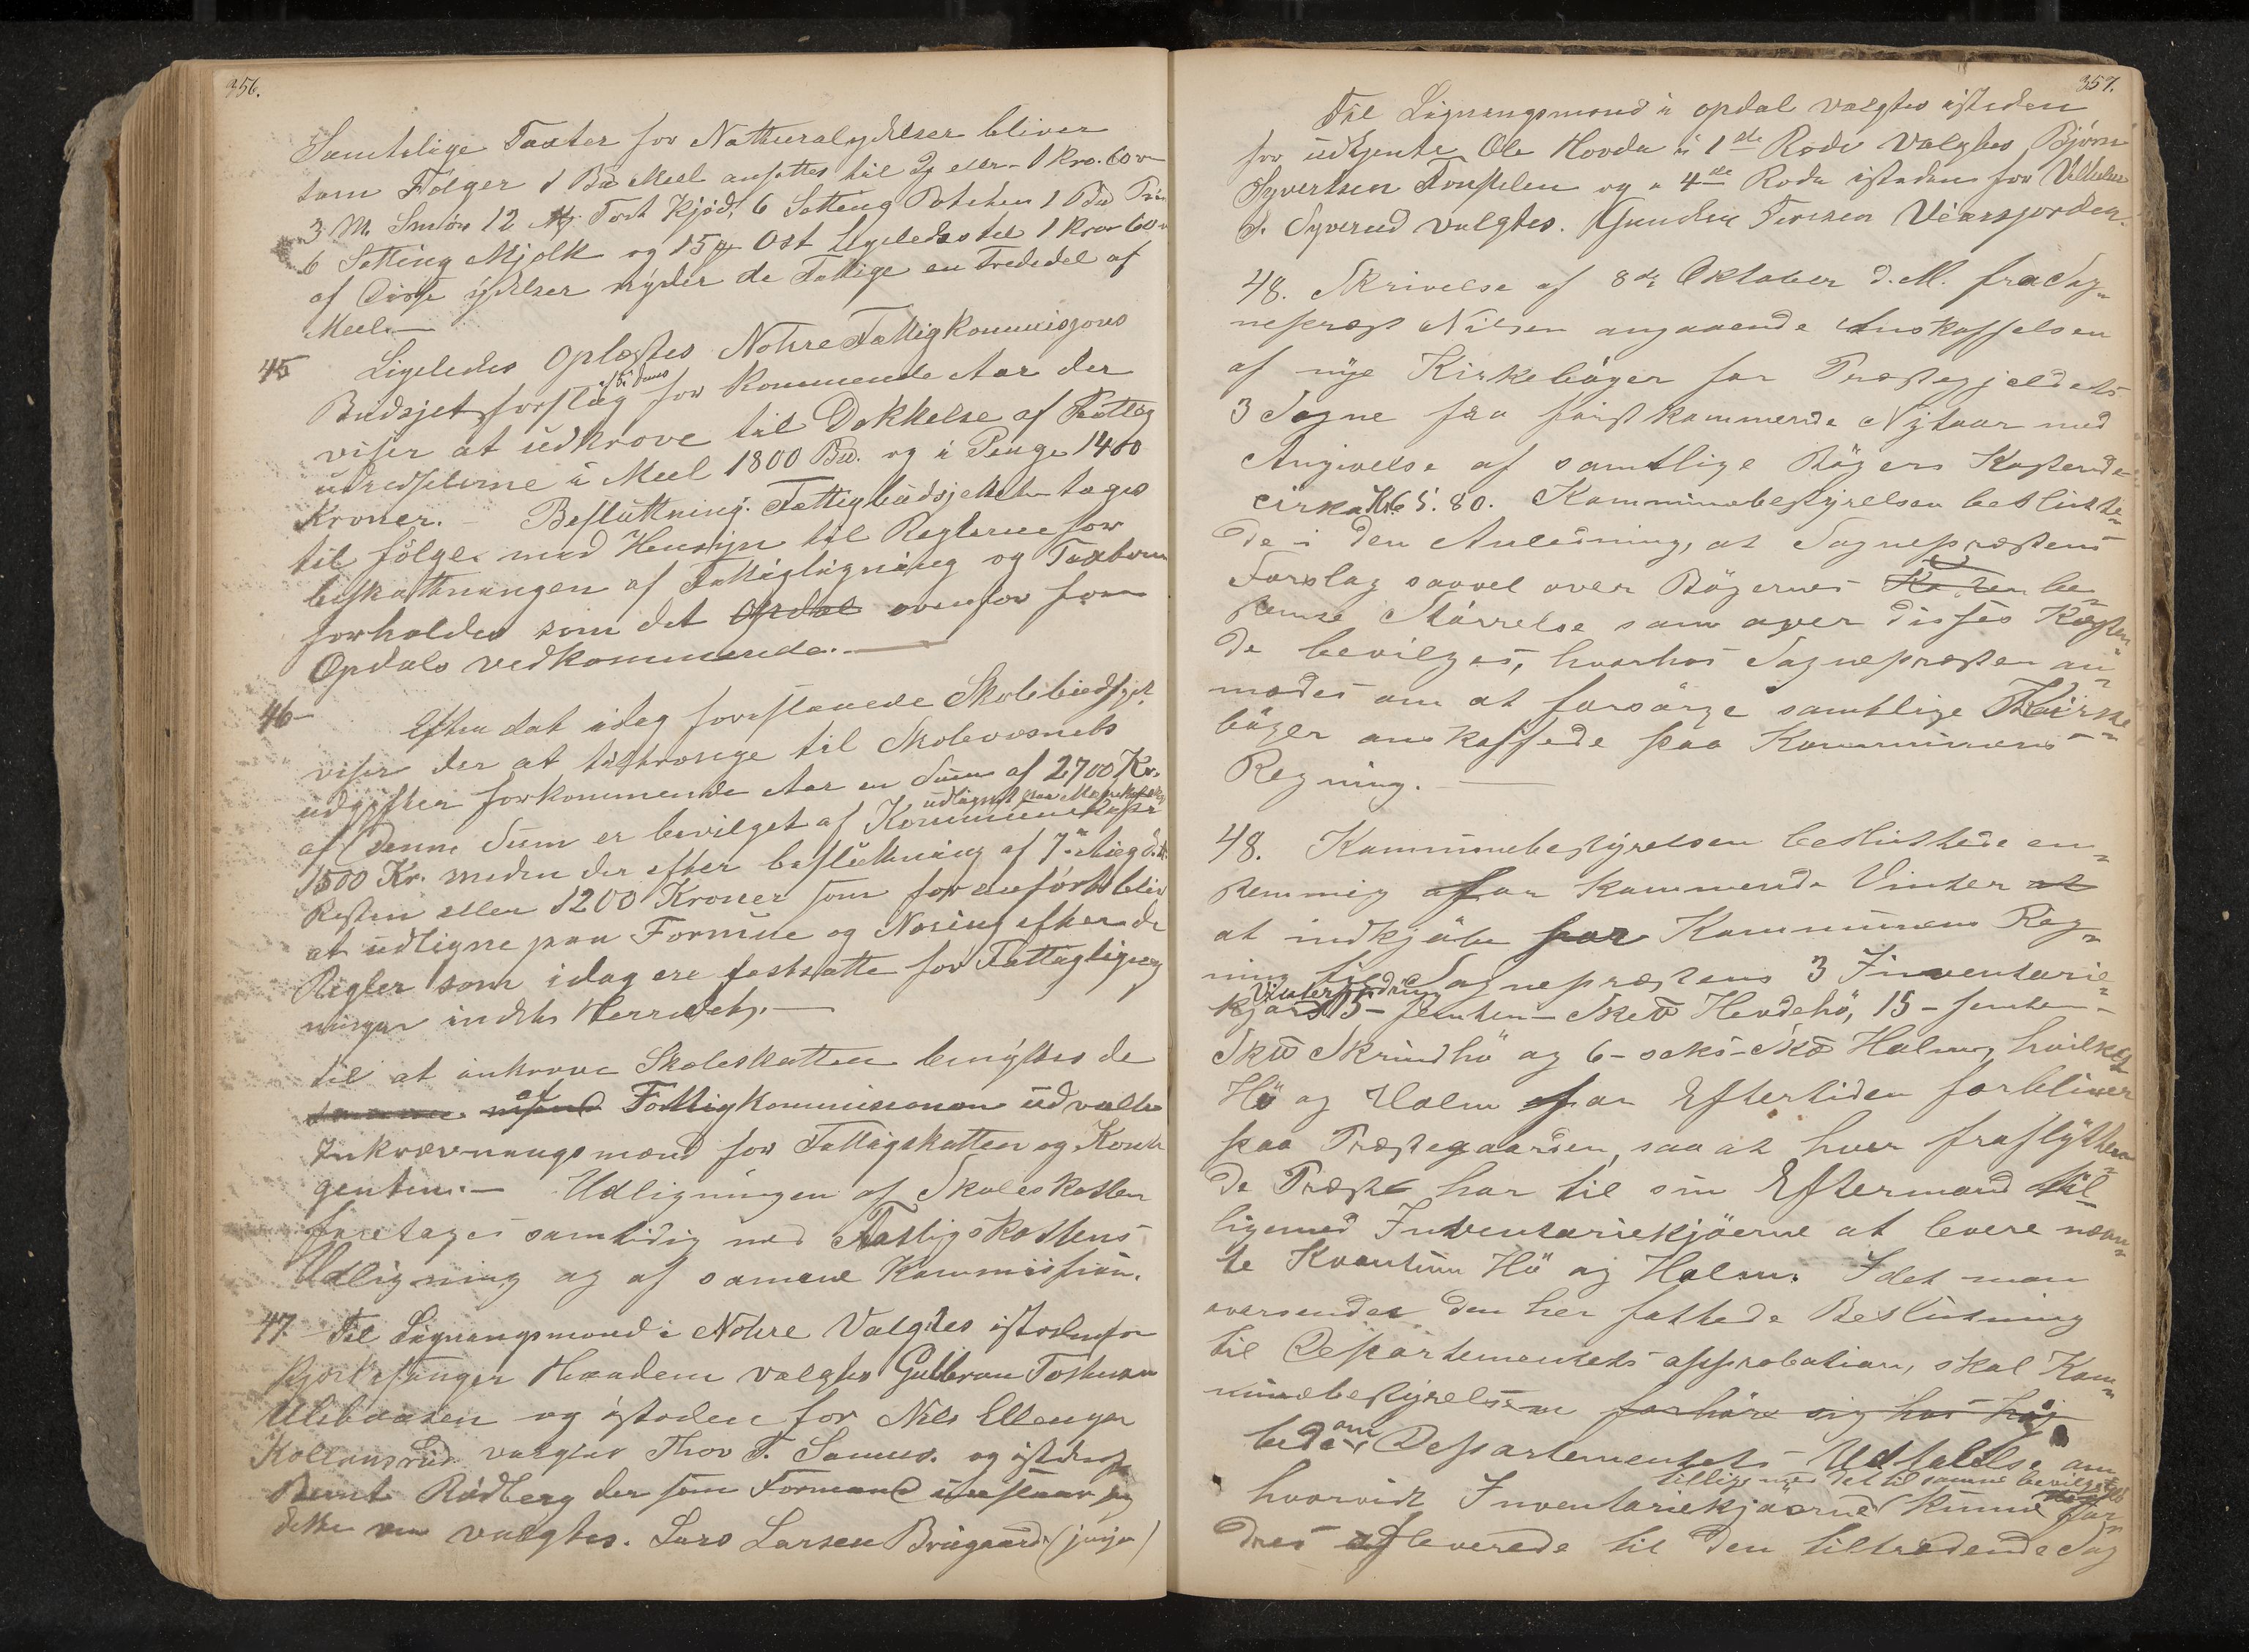 356.
Samtelige Taxter for Natturalydelser bliver
som Følger 1 Bu Meel ansættes til 2 eller 1 Kro. 60
3 M. Smör 12 Tört Kjöd, 6 Setting Poteter 1
6 Setting Mjolk og 15 Ost Ligeledes til 1 Kron 60
af disse ydelser nyder de Fattige en Trededel af
Meel. —
45 Ligeledes Oplæstes Nohre Fattigkommisjons
Budsjetforslag for kommende Aar der
viser at udkrove til Dækkelse af Fattig
udredselerne i Meel 1800 Bu. og i Penge 1400
Kroner. — Besluttning: Fattigbudsjettet tages
til følge med Hensyn til Reglerne for
beskattningen af Fattigligning og
forholdes som det Opdal ovenfor for
Opdals vedkommende. —
46 — Efter dat idag foreslaaede Skolebudsjet
viser der at tiltrænge til Skolevæsnets
udgifter for kommende Aar en Sum af 2700 Kr.
af denne Sum er bevilget af Kommunekasse
1500 Kr. meden der efter besluttning af 7de d. A.
Resten eller 1200 Kroner som for anförtt bliv
at udligne paa Formue og Næring efter de
Regler som idag ere fastsatte for Fattiglign
ninger indets Herredet. —
til at inkrove Skoleskatten benyttes de
af Fattigkommissionen udvalte
Inkrævningsmænd for Fattigskatten og Kontin
genten. — Udligningen af Skoleskatten
foretages samtidig med Fattigskattens
Udligning og af samme Kommission.
47. Til Ligningsmænd i Nohre Valgtes istedenfor
Haadem valgtes Gulbran Tostensen
og isteden for Nils Ellengen
valgtes Thov T. og istedenf
Bernt Rödberg der som Formand
valgtes. Lars Larsen Brügaard
357.
Til Ligningsmænd i Opdal valgtes isteden
for udtjente Ole Hovda i 1ste Rode Valgtes Björn
Syvertsen og i 4de Rode isteden for
valgtes. Gunder
48. Skrivelse af 8de Oktober d. A. fra Sog=
neprest Nilsen angaaende Anskaffelsen
af nye Kirkebøger for Prestegjeldets
3 Sogne fra førstkommende Nytaar med
Angivelse af samtlige Bøgers Kostende
cirka Kr. 65.80. Kommunebestyrelsen beslutte=
de i den Anledning, at Sogneprestens
Forslag saavel over Bøgernes Kosten be=
stemte Størrelse som over disses Kosten=
de bevilges, hvorhos Sognepresten an=
modes om at forsørge samtlige Kirke=
bøger anskaffede paa Kommunens
Regning. —
48. Kommunebestyrelsen besluttede en=
stemmig for kommende Vinter at
at indkjøbe for Kommunens Reg=
ning til Sogneprestens 3 Inventarie=
Vinterfodring
kjør 15 – femten – Skp Hevdehø, 15 – femten –
Skp Skrindhø og 6 – seks – Skp Halm, hvilket
Hø og Halm for Eftertiden forbliver
paa Prestegaarden, saa at hver fraflytten
de Prest har til sin Eftermand til=
ligemed Inventariekjøerne at levere nævn=
te Kvantum Hø og Halm. Idet man
oversender den her fattede Beslutning
til Departementets approbation, skal Kom=
munebestyrelsen forhöre sig hos høj
bede om Departementets Udtalelse om
tillige med det til samme bevilgede
hvorvidt Inventariekjøerne kunne for=
dres afleverede til den tiltrædende Sog